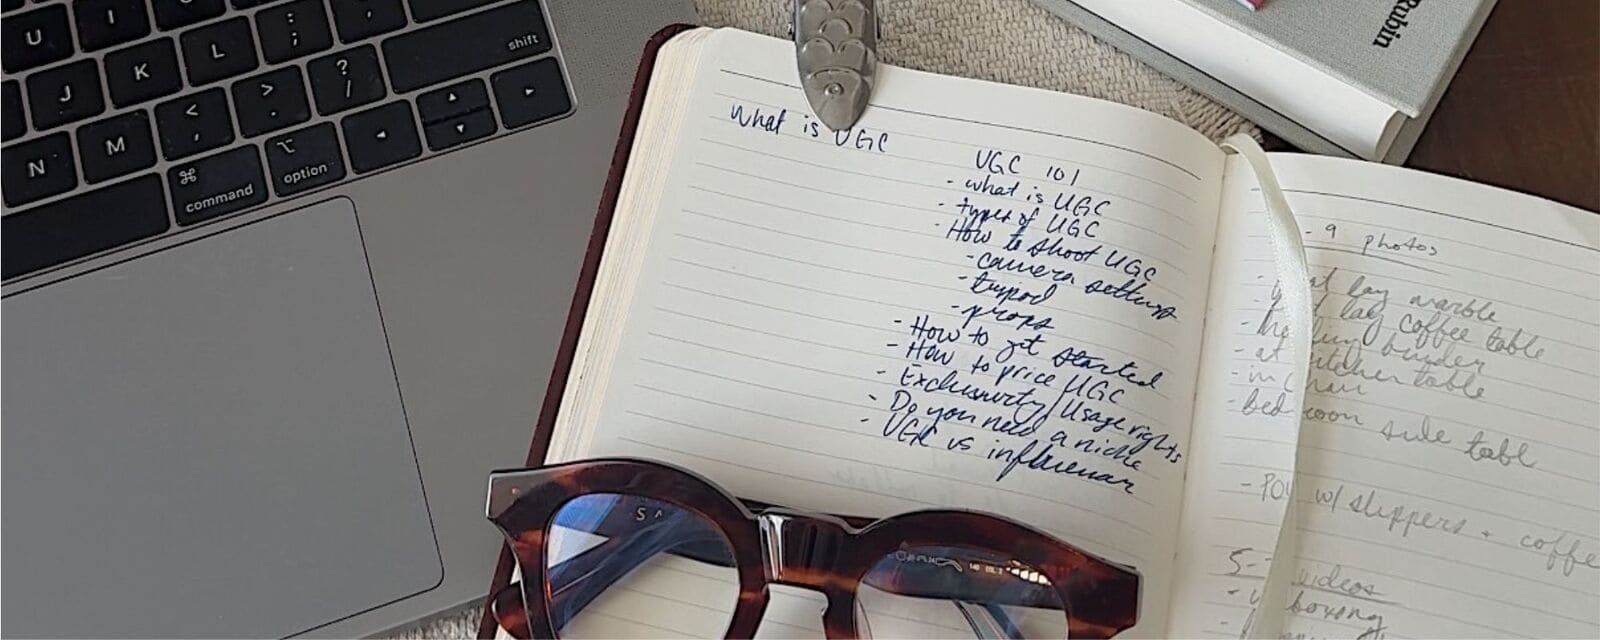 U I O P
J K L : ;
N M < , > . ? / shift
⌘ command ⌥ option
Rubin
What is UGC
UGC 101
- what is UGC
- types of UGC
- How to shoot UGC
- camera settings
- tripod
- props
- How to get started
- How to price UGC
- Exclusivity/Usage rights
- Do you need a niche
- UGC vs influencer
- 9 photos
lay marble
lay coffee table
- holding binder
- at kitchen table
- in chair
- bedroom side table
- POV w/ slippers + coffee
5- videos
- unboxing